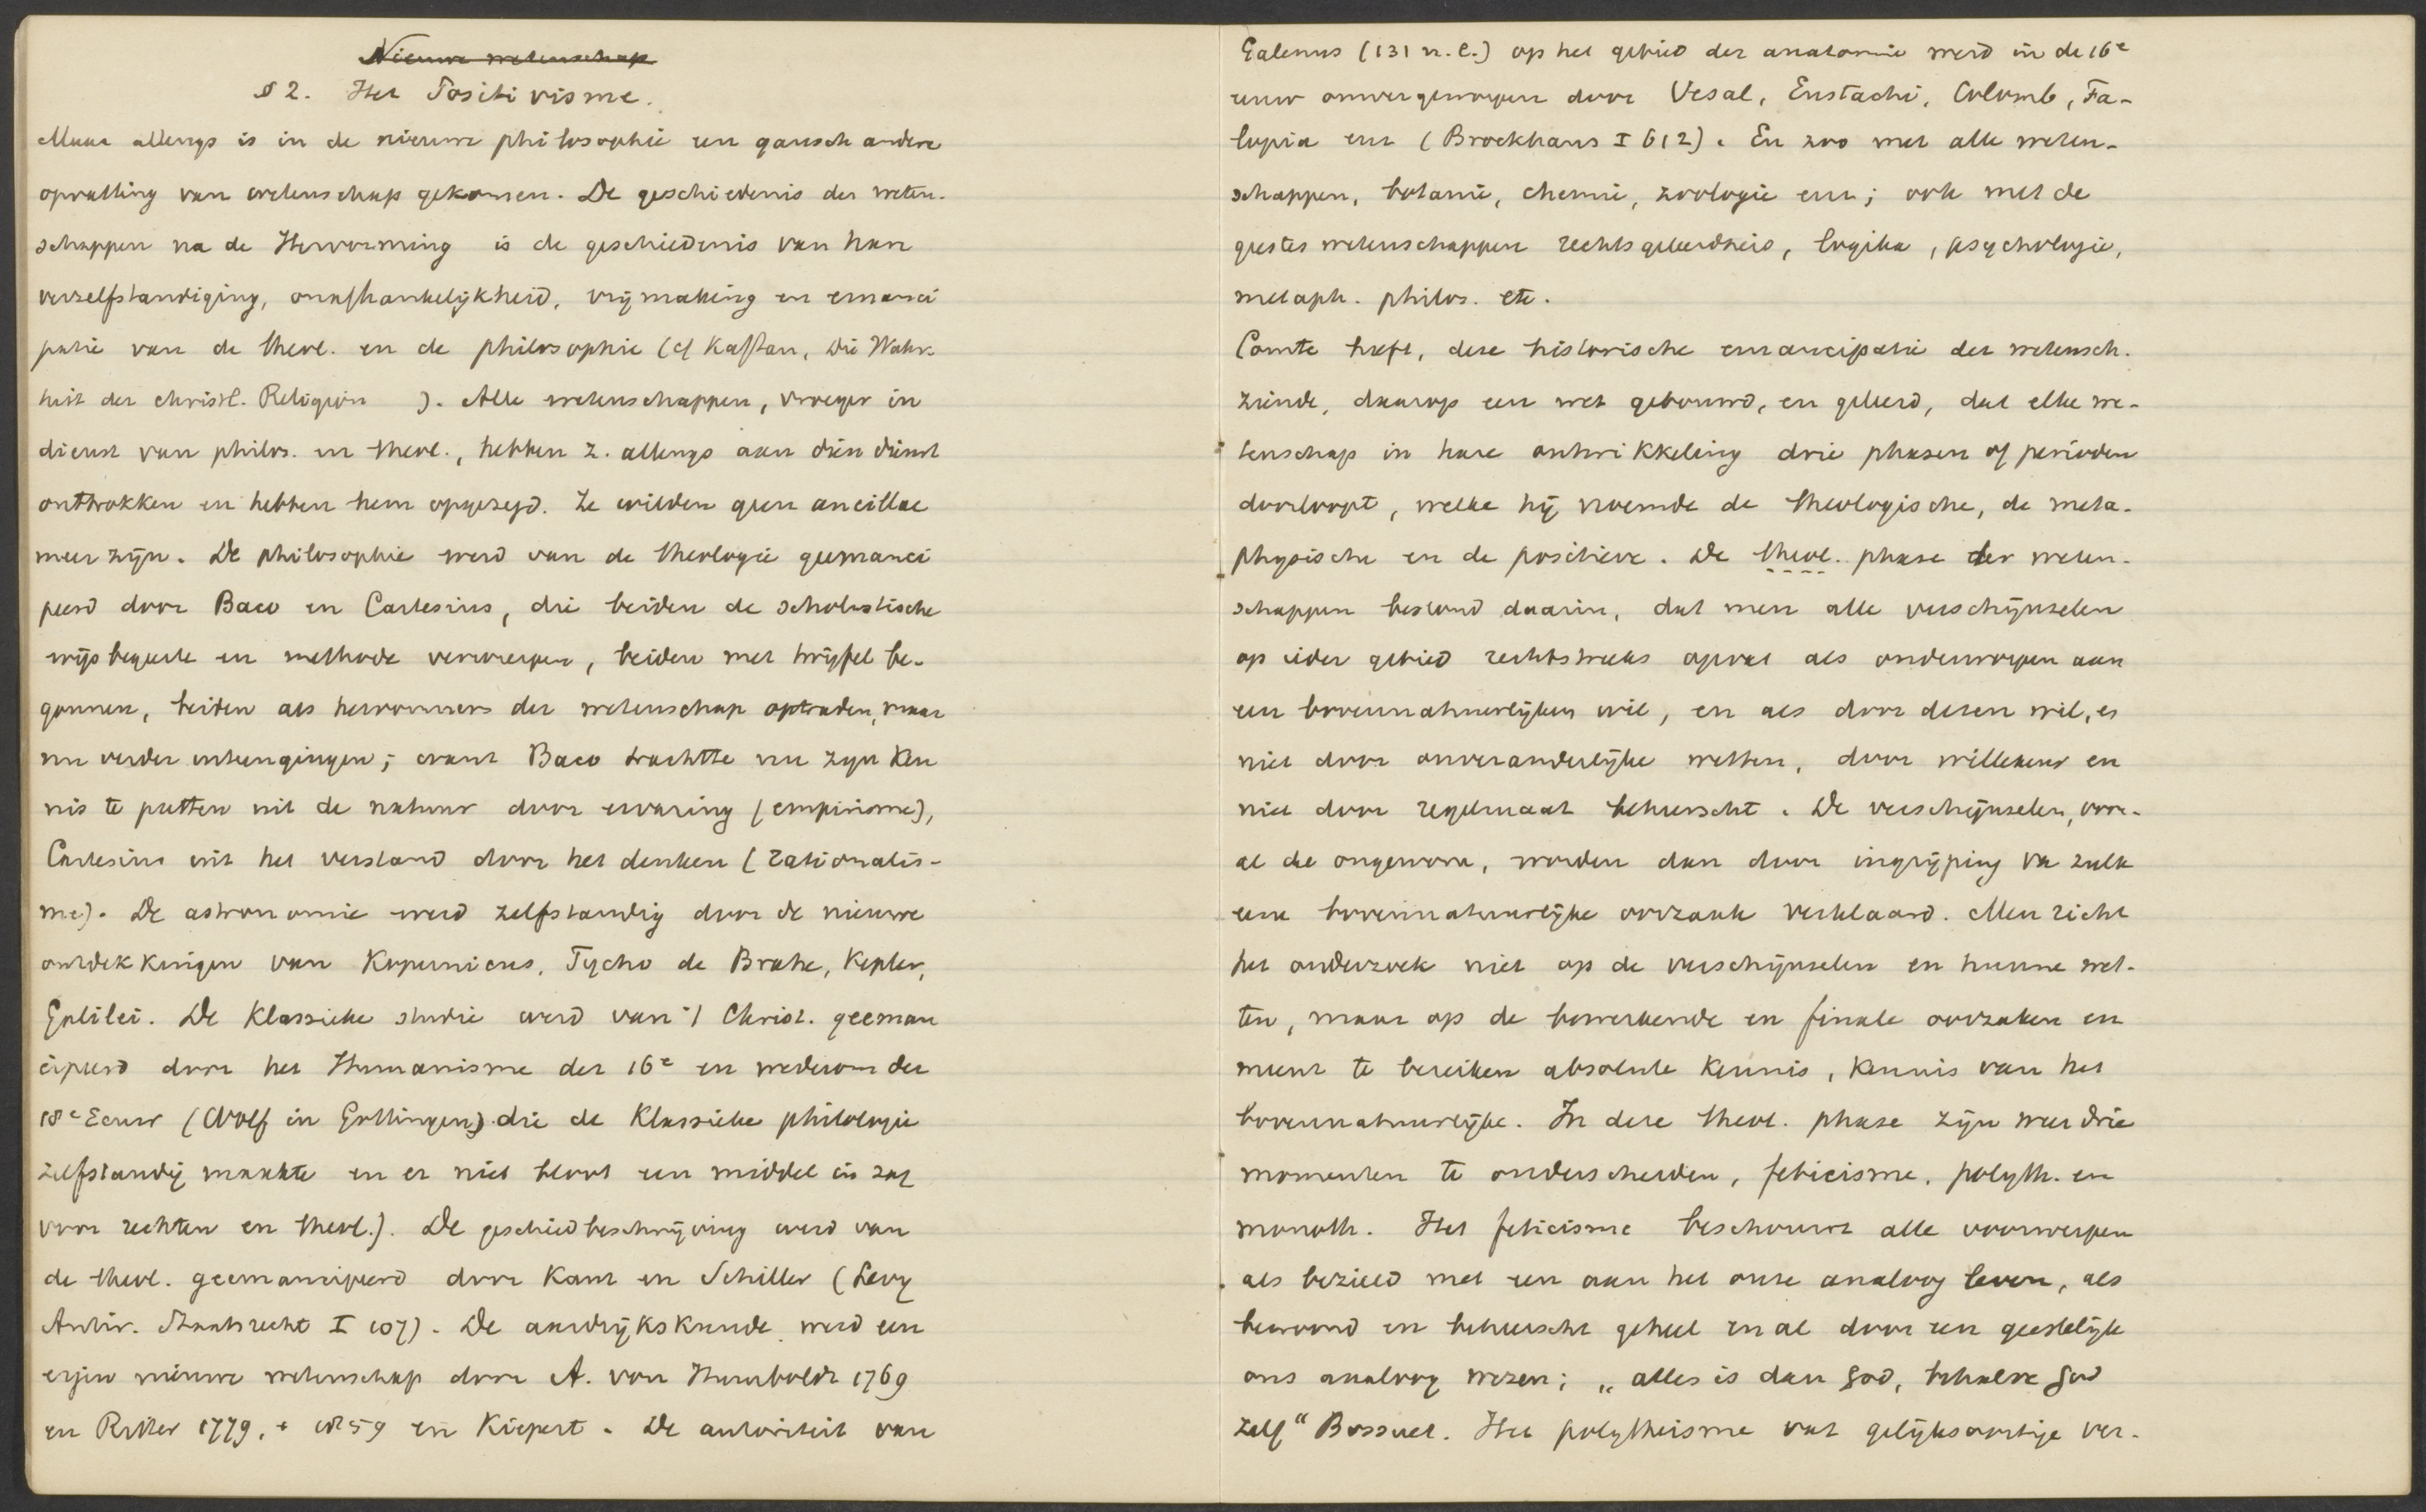 Nieuwe wetenschap
§ 2. Het Positivisme.
Maar allengs is in de nieuwe philosophie een gansch andere
opvatting van wetenschap gekomen. De geschiedenis der weten-
schappen na de Hervorming is de geschiedenis van hun
verzelfstandiging, onafhankelijkheid, vrijmaking en emanci
patie van de theol. en de philosophie (cf Kaftan, Die Wahr-
heit der christl. Religion ). Alle wetenschappen, vroeger in
dienst van philos. en theol., hebben z. allengs aan dien dienst
onttrokken en hebben hem opgezegd. Ze wilden geen ancillae
meer zijn. De philosophie werd van de theologie geemanci
peerd door Baco en Cartesius, die beiden de scholastische
wijsbegeerte en methode verwierpen, beiden met twijfel be-
gonnen, beiden als hervormers der wetenschap optraden, maar
nu verder uiteengingen; want Baco trachtte nu zijn ken
nis te putten uit de natuur door ervaring (empirisme),
Cartesius uit het verstand door het denken (rationalis-
me). De astronomie werd zelfstandig door de nieuwe
ontdekkingen van Kopernicus, Tycho de Brahe, Kepler,
Galilei. De klassieke studie werd van 't Christ. geeman
cipeerd door het Humanisme der 16e en wederom der
18e eeuw (Wolf in Gottingen) die de klassieke philologie
zelfstandig maakte en er niet bloot een middel in zag
voor rechten en theol.). De geschiedbeschrijving werd van
de theol. geemancipeerd door Kant en Schiller (Levy
Antir. Staatsrecht I 107). De aardrijkskunde werd een
eigen nieuwe wetenschap door A. von Humboldt 1769
en Ritter 1779, + 1859 en Kiepert. De autoriteit van
Galenus (131 n. C.) op het gebied der anatomie werd in de 16e
eeuw omvergeworpen door Vesal, Eustachi, Colomb, Fa-
lopia enz (Brockhaus I 612). En zoo met alle weten-
schappen, botanie, chemie, zoologie enz; ook met de
geestes wetenschappen rechtsgeleerdheid, logika, psychologie,
metaph. philos. etc.
Comte heeft, deze historische emancipatie der wetensch.
ziende, daarop een wet gebouwd, en geleerd, dat elke we-
tenschap in hare ontwikkeling drie phasen of perioden
doorloopt, welke hij noemde de theologische, de meta-
physische en de positieve. De theol. phase der weten-
schappen bestond daarin, dat men alle verschijnselen
op ieder gebied rechtstreeks opvat als onderworpen aan
een bovennatuurlijken wil, en als door dezen wil, es
niet door onveranderlijke wetten, door willekeur en
niet door regelmaat beheerscht. De verschijnselen, voor-
al de ongewone, worden dan door ingrijping va zulk
eene bovennatuurlijke oorzaak verklaard. Men richt
het onderzoek niet op de verschijnselen en hunne wet-
ten, maar op de bewerkende en finale oorzaken en
meent te bereiken absolute kennis, kennis van het
bovennatuurlijke. In deze theol. phase zijn weer drie
momenten te onderscheiden, feticisme, polyth. en
monoth. Het feticisme beschouwt alle voorwerpen
als bezield met een aan het onze analoog leven, als
bewoond en beheerscht geheel en al door een geestelijk
ons analoog wezen; „alles is dan God, behalve God
zelf“ Bossuet. Het polytheisme vat gelijksoortige ver-